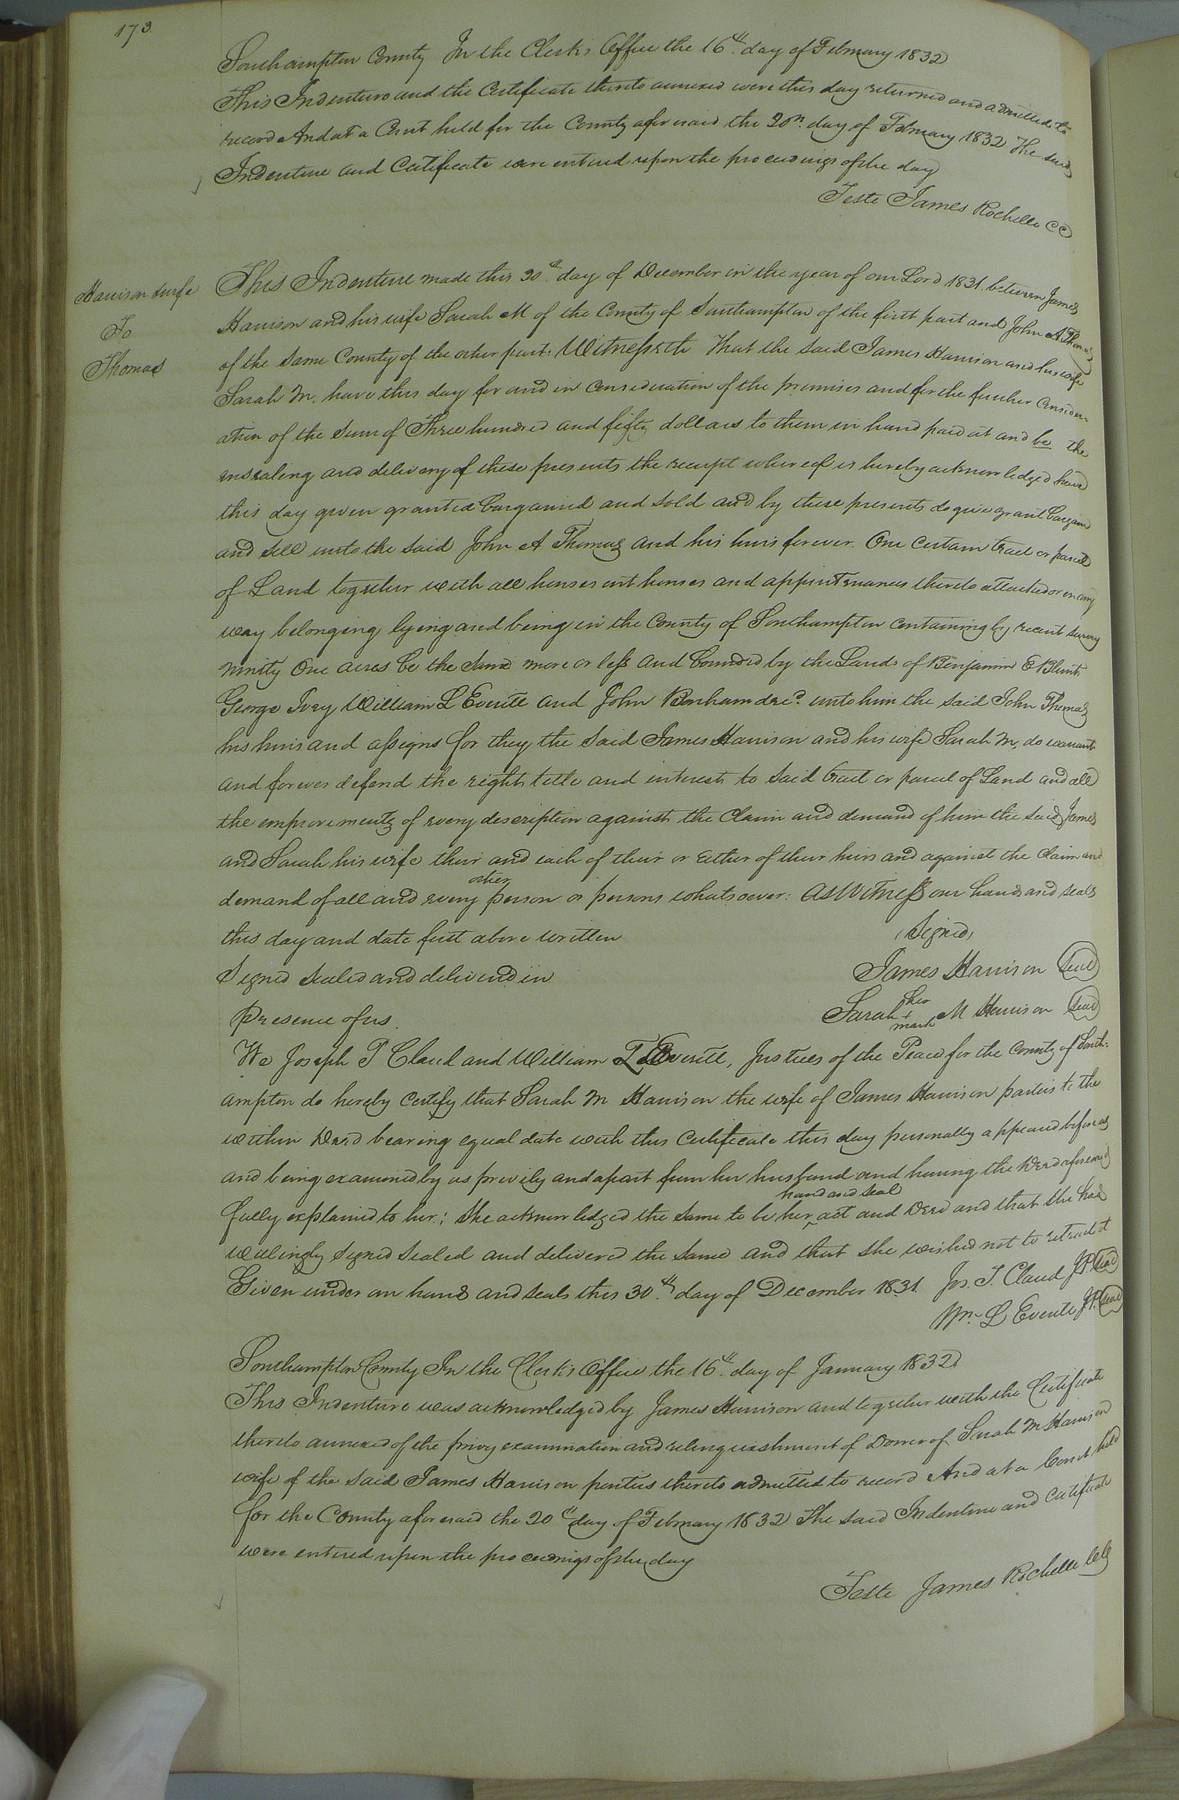 173
Southampton County In the Clerks Office the 16th day of February 1832
This Indenture and the Certificate thereto annexed were this day returned and admitted to
record And at a Court held for the County aforesaid the 20th day of February 1832 The said
Indenture and Certificate were entered upon the proceedings of the day
Teste James Rochelle CC
Harrison & wife
To
Thomas
This Indenture made this 30th day of December in the year of our Lord 1831 between James
Harrison and his wife Sarah M of the County of Southampton of the first part and John A Thomas
of the same County of the other part: Witnesseth That the said James Harrison and his wife
Sarah M. have this day for and in Consideration of the premises and for the further Consider-
ation of the Sum of Three hundred and fifty dollars to them in hand paid at and be the
ensealing and delivery of these presents the receipt whereof is hereby acknowledged have
this day given granted bargained and sold and by these presents do give grant bargain
and sell unto the said John A Thomas and his heirs forever. One certain tract or parcel
of Land together with all houses out houses and appurtenances thereto attached or in any
way belonging lying and being in the County of Southampton containing by recent survey
ninety One acres be the same more or less and bounded by the Lands of Benjamin E Blunt
George Ivey William L Everitt and John Bonham decd. unto him the said John Thomas
his heirs and assigns for they the said James Harrison and his wife Sarah M, do warrant
and forever defend the right title and interest to said tract or parcel of Land and all
the improvements of every description against the Claim and demand of him the said James
and Sarah his wife their and each of their or Either of their heirs and against the Claim and
demand of all and every other person or persons whatsoever: As Witness our hands and seals
this day and date first above written
(Signed)
Signed sealed and delivered in
James Harrison (Seal)
Presence of us.
Sarah her + mark M Harrison (Seal)
We Joseph T Claud and William L Everitt, Justices of the Peace for the County of South-
ampton do hereby Certify that Sarah M Harrison the wife of James Harrison parties to the
within Deed bearing equal date with this Certificate this day personally appeared before us
and being examined by us privily and apart from her husband and having the Deed aforesaid
fully explained to her; She acknowledged the same to be her hand and seal act and Deed and that she had
willingly signed sealed and delivered the same and that she wished not to retract it
Given under our hands and seals this 30th day of December 1831 Jos. T. Claud J.P. (Seal)
Wm. L Everitt J.P. (Seal)
Southampton County In the Clerks Office the 16th day of January 1832
This Indenture was acknowledged by James Harrison and together with the Certificate
thereto annexed of the privy examination and relinquishment of Dower of Sarah M Harrison
wife of the said James Harrison parties thereto admitted to record And at a Court held
for the County aforesaid the 20th day of February 1832 The said Indenture and Certificate
were entered upon the proceedings of the day
Teste James Rochelle CC